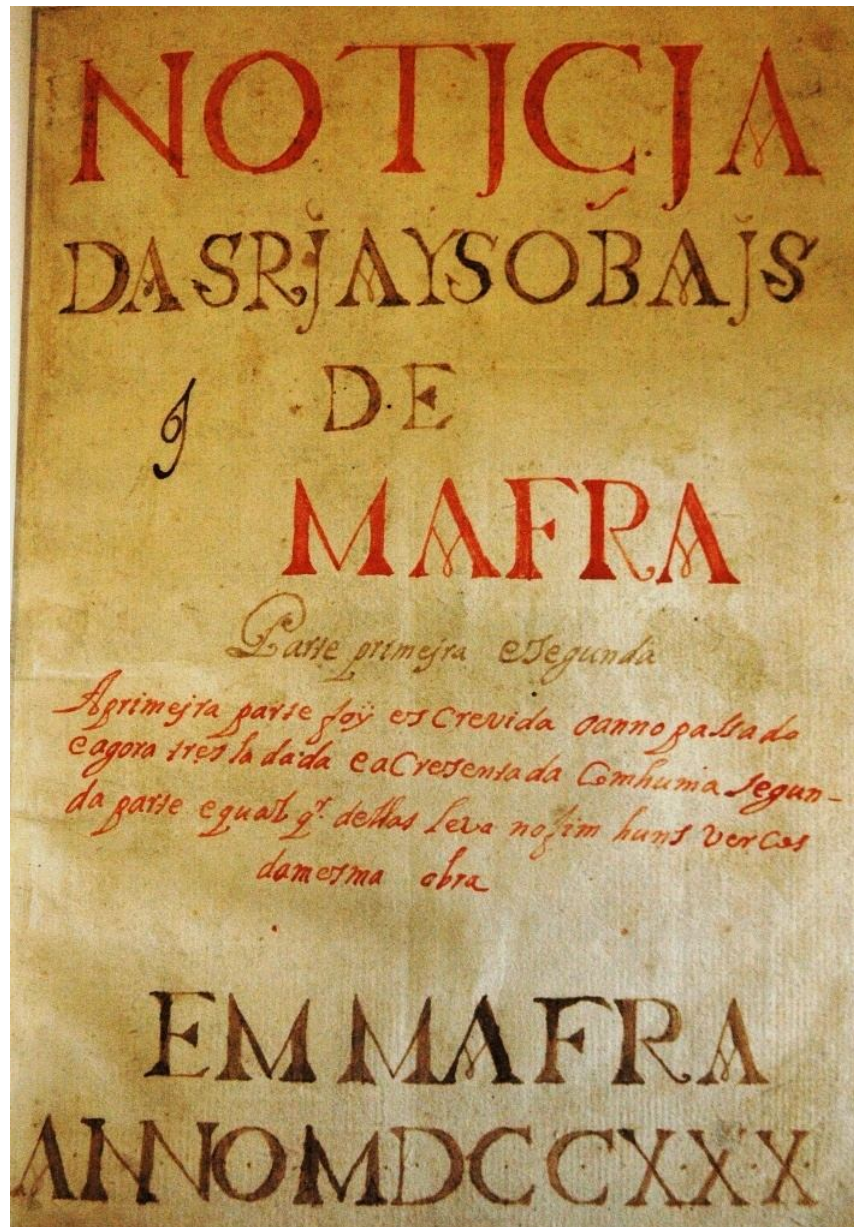 NOTJCJA
DAS RJAYS OBAJS
DE
MAFRA
Parte primejra e segunda
A primejra parte foÿ escrevida o anno passado
e agora tresladada e acresentada com huma segun-
da parte e qual qr. dellas leva no fim huns verços
da mesma obra
EM MAFRA
ANNO MDCCXXX